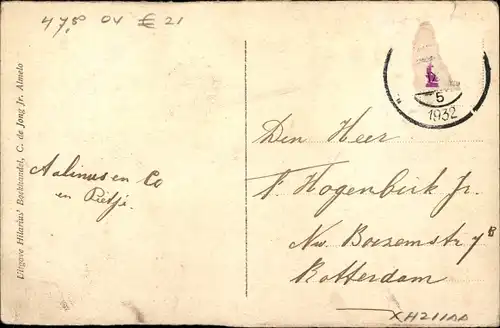 47,50 OV € 21
Uitgave Hilarius' Boekhandel, C. de Jong Jr. Almelo
5
1932
Aalinus en Co
en Pietje.
Den Heer
F. Hogenbirk Jr.
Nw. Boezemstr 7 B
Rotterdam
XH211AA